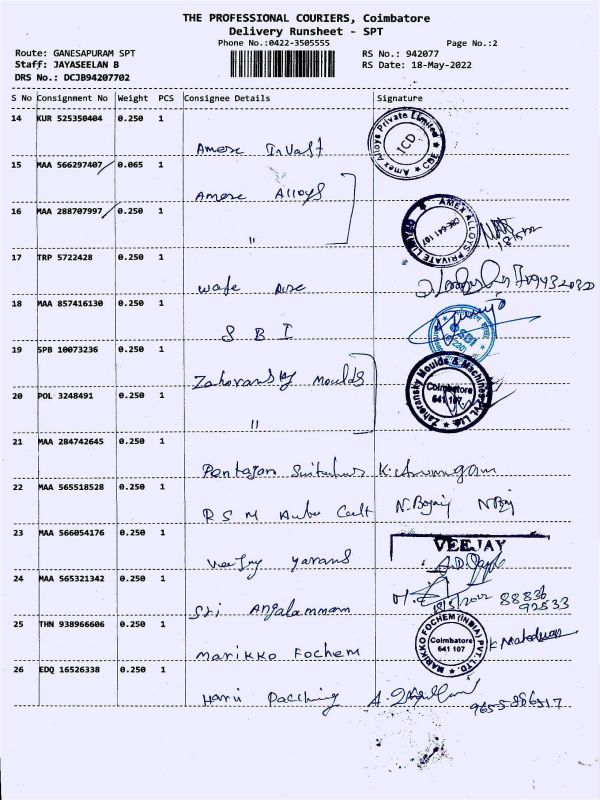 THE PROFESSIONAL COURIERS, Coimbatore
Delivery Runsheet - SPT
Phone No.:0422-3505555
Page No.:2
Route: GANESAPURAM SPT
RS No.: 942077
Staff: JAYASEELAN B
RS Date: 18-May-2022
DRS No.: DCJB94207702
S No Consignment No Weight PCS Consignee Details Signature
14 KUR 525350404 0.250 1
Amex Invast
Amex Alloys Private Limited
ICD
CBE
15 MAA 566297407 0.065 1
Amex Alloys
16 MAA 288707997 0.250 1
"
AMEX ALLOYS PRIVATE LIMITED
CBE-641 107
17 TRP 5722428 0.250 1
18 MAA 857416130 0.250 1
S B I
19 SPB 10073236 0.250 1
Zahoransky Moulds
Zahoransky Moulds & Machines Pvt. Ltd.
Coimbatore
641 107
20 POL 3248491 0.250 1
"
21 MAA 284742645 0.250 1
K. Arumugam
22 MAA 565518528 0.250 1
R S M Auto Cast
23 MAA 566054176 0.250 1
VeeJay yarans
VEEJAY
24 MAA 565321342 0.250 1
Sri Angalammam
18/5/2022
88836
92533
25 THN 938966606 0.250 1
Marikko Fochem
MARIKKO FOCHEM (INDIA) PVT. LTD.
Coimbatore
641 107
26 EDQ 16526338 0.250 1
Harii Packing
9655886517